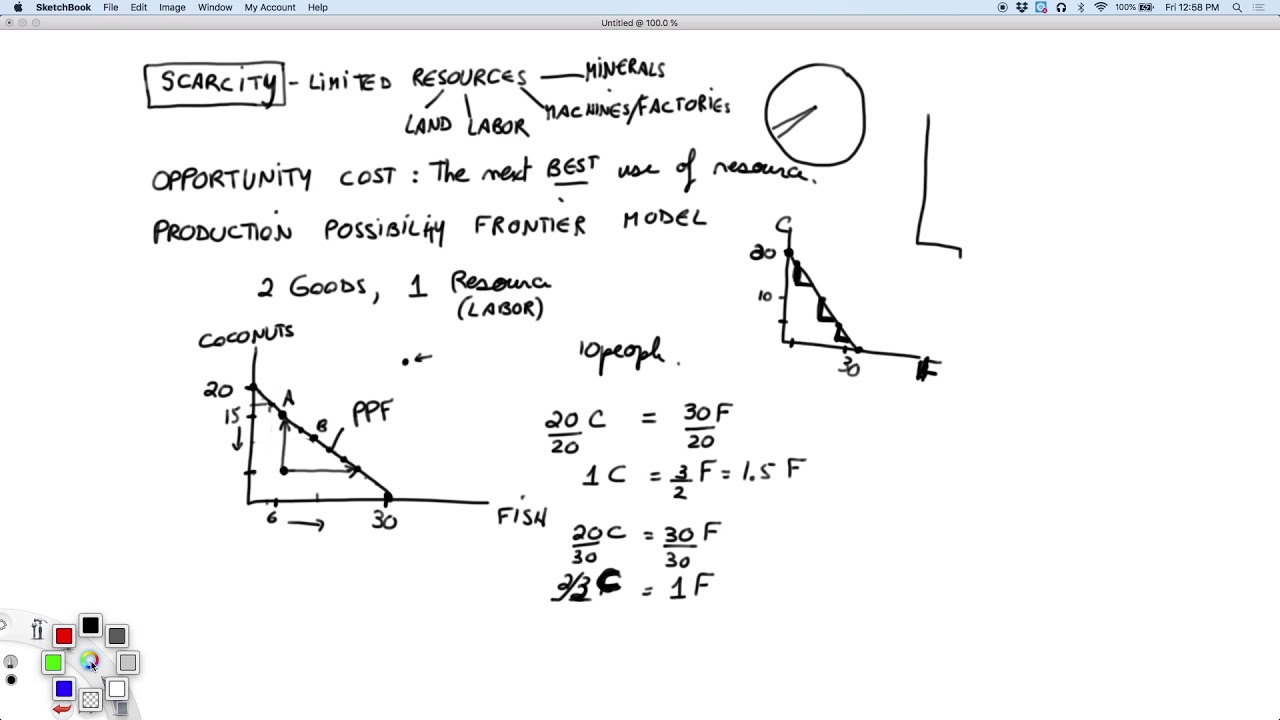 SketchBook File Edit Image Window My Account Help 100% Fri 12:58 PM
Untitled @ 100.0 %
SCARCITY - LIMITED RESOURCES MINERALS
LAND LABOR MACHINES/FACTORIES
OPPORTUNITY COST : The next BEST use of resource.
PRODUCTION POSSIBILITY FRONTIER MODEL
2 GOODS, 1 Resource
(LABOR)
C
20
10
30
F
COCONUTS
20
15
A
B
PPF
6
30
FISH
10 people.
20 C = 30 F
20 20
1 C = 3 F = 1.5 F
2
20 C = 30 F
30 30
2/3 C = 1 F